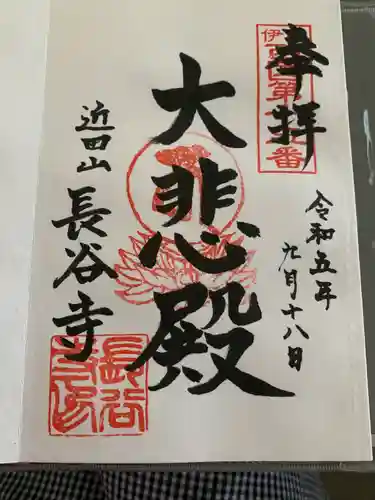 奉拝
大悲殿
近田山
長谷寺
令和五年
九月十八日
長谷
寺印